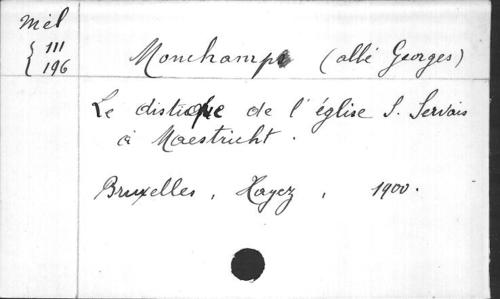 Mél
{ 111
{ 196
Monchamp (abbé Georges)
Le distique de l'église S. Servais
à Maestricht.
Bruxelles, Hayez, 1900.